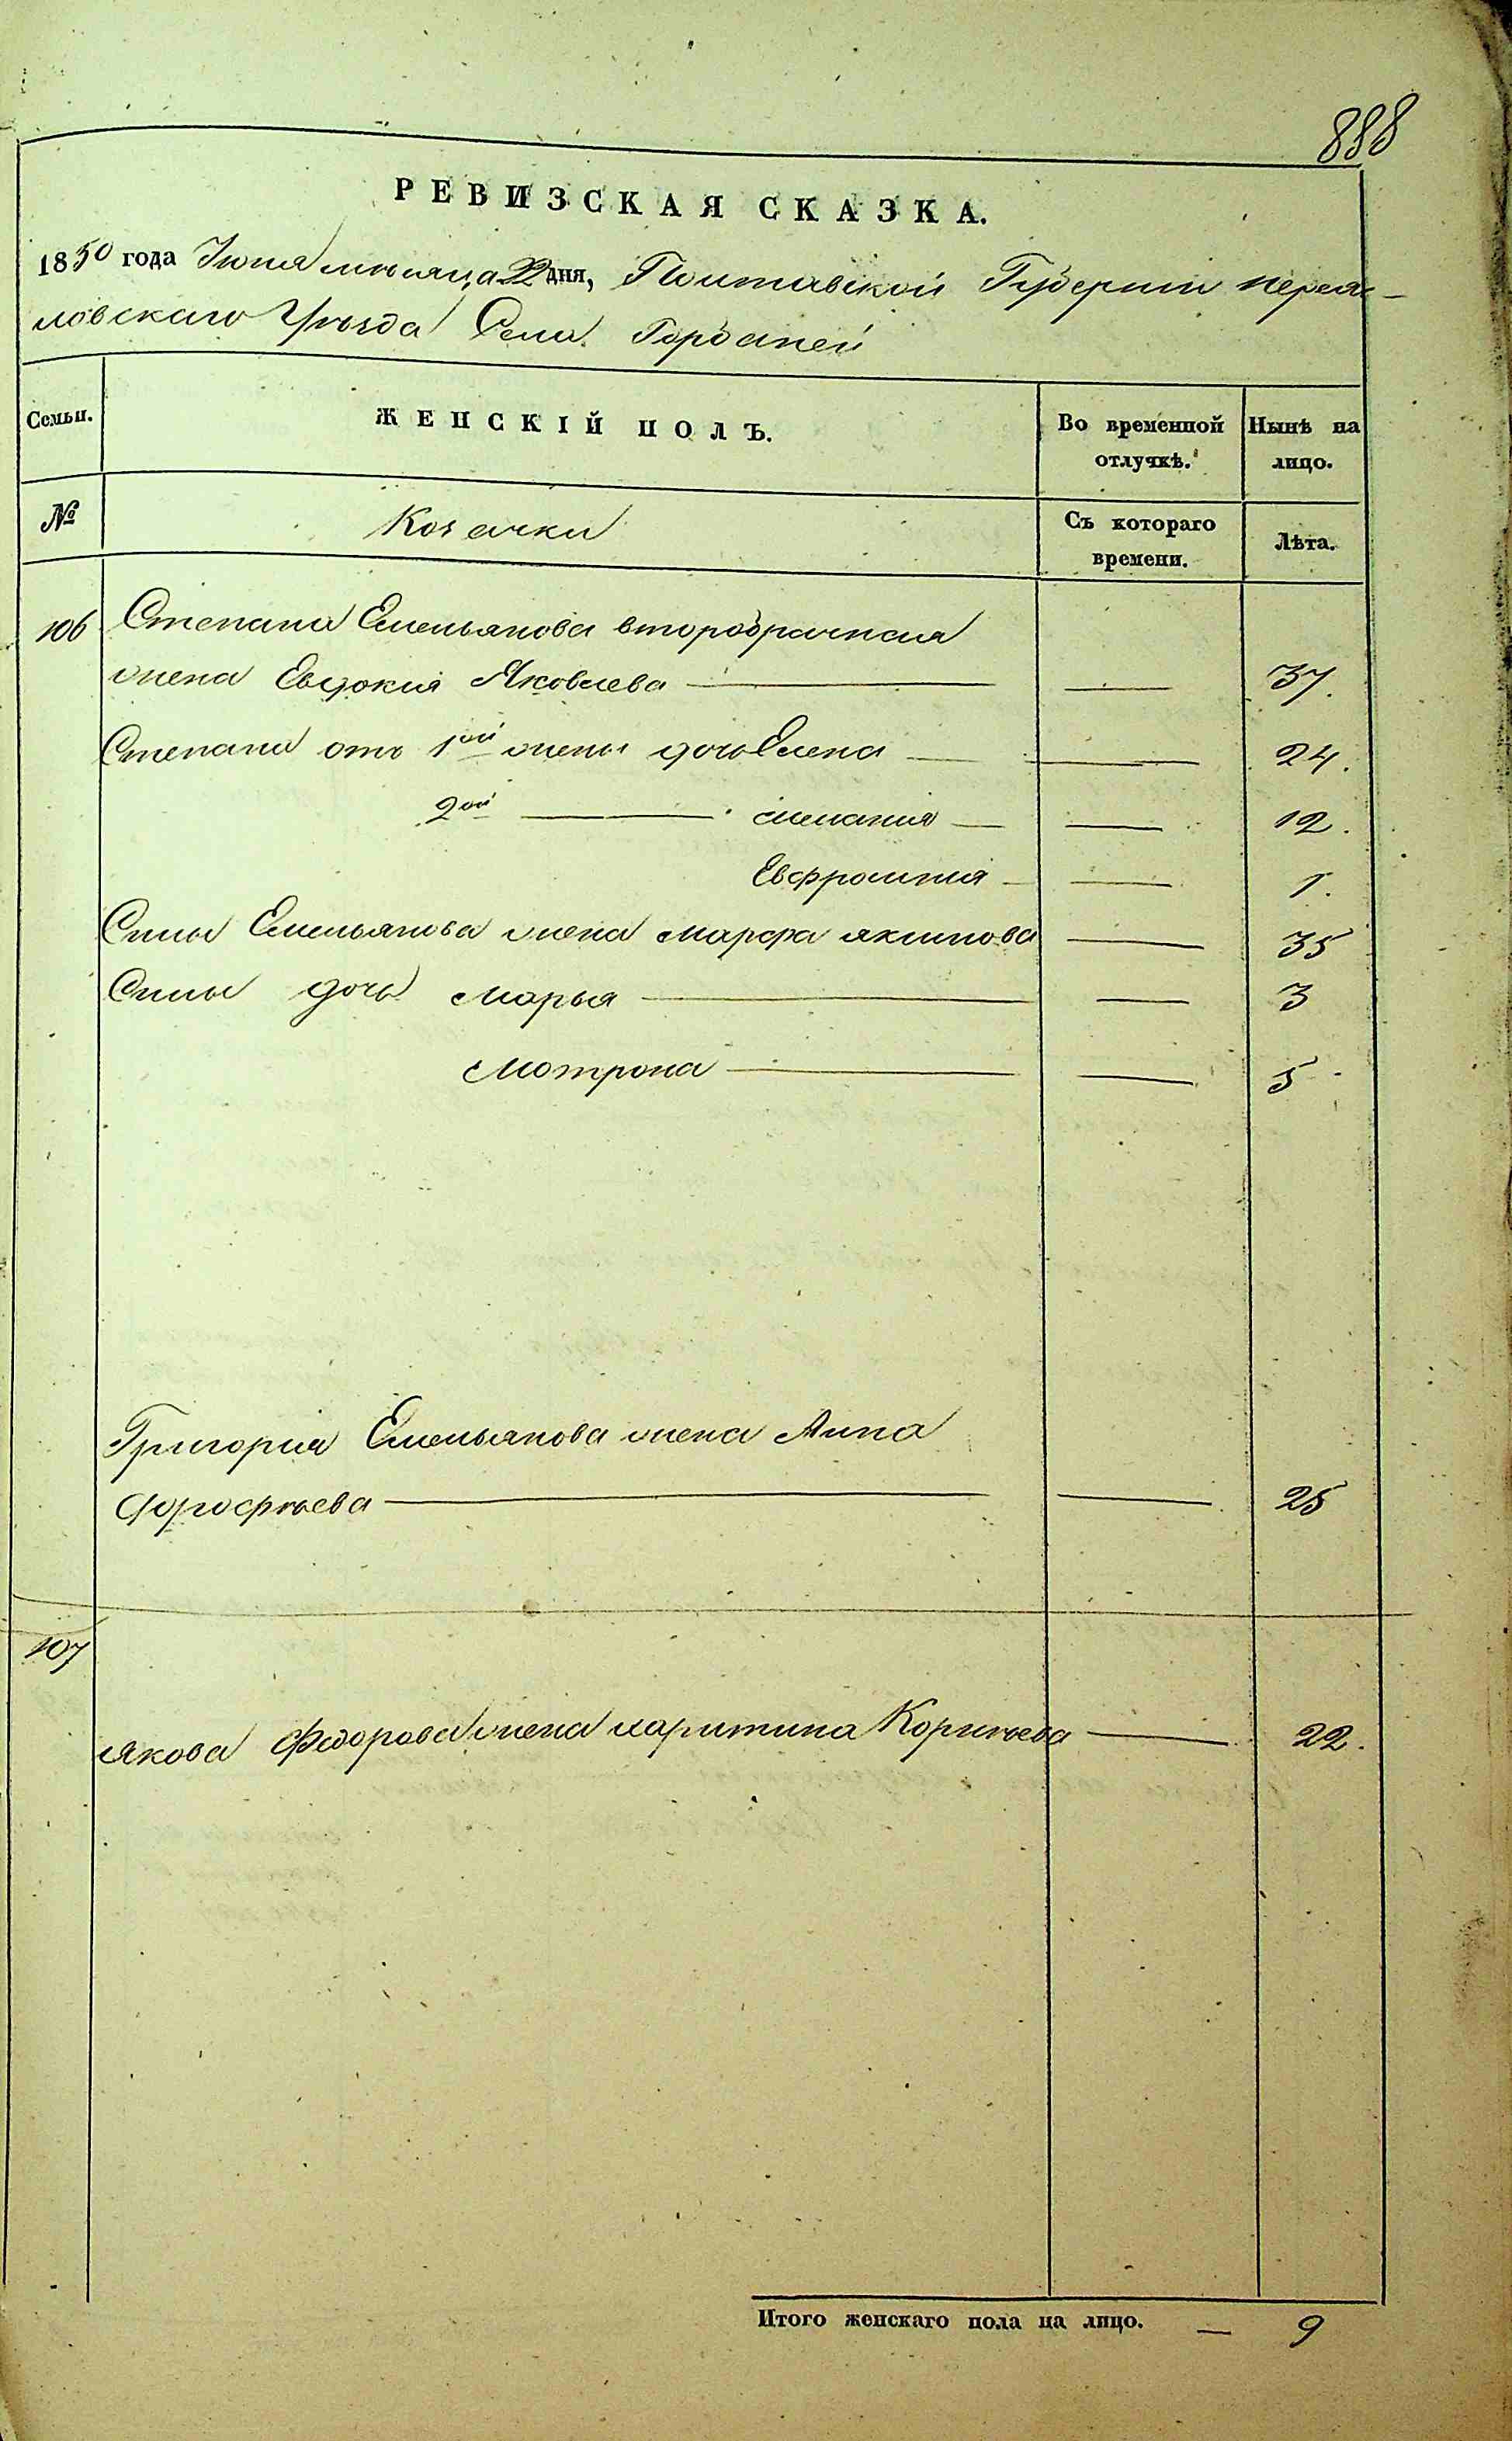 888
РЕВИЗСКАЯ СКАЗКА.
1850 года Июня мѣсяца 22 дня, Полтавской Губерніи переяс-
ловскаго Уѣзда Села Горбаней
Семьи.
ЖЕНСКІЙ ПОЛЪ.
Во временной отлучкѣ.
Нынѣ на лицо.
№
Козачки
Съ котораго времени.
Лѣта.
106 Степана Емельянова второбрачная
жена Евдокия Яковлева — — 37.
Степана отъ 1ой жены дочь Елена — — 24.
2ой — мелания — — 12.
Евфросиния — — 1.
Силы Емельянова жена марфа якимова — 35
Силы дочь марья — — 3
мотрона — — 5
Григория Емельянова жена Анна
дорофѣева — — 25
107
якова Федорова жена харитина Корнѣева — 22.
Итого женскаго пола на лицо. — 9